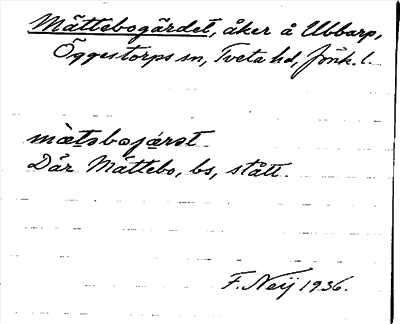 Mättebogärdet, åker å Ubbarp,
Öggestorps sn, Tveta hd, Jönk. l.
mæ̀təbojæ̀rət
Där Mättebo, bs, stått.
F. Neij 1936.